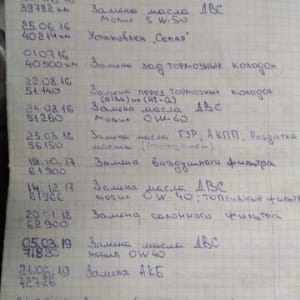 39782 км Замена масла ДВС
мобил 5W-50
25.06.16
40214 км Установлен "Сепар"
01.07.16
40500 км Замена зад тормозных колодок
22.08.16
51140 Замена перед тормозных колодок
24.08.16 Замена масла ДВС
51260 мобил 0W-40
25.03.18 Замена масла ГЗР, АКПП, Раздатка
56150 мосты
19.10.17 Замена воздушного фильтра
61900
14.12.17 Замена масла ДВС
мобил 0W-40; топливные фильтр
20.01.18 Замена салонного фильтра
62900
05.03.19 Замена масла ДВС
71820 мобил 0W40
21.06.19 Замена АКБ
72726